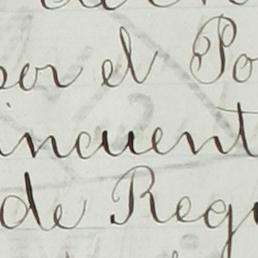 por el Po
incuent
de Reg